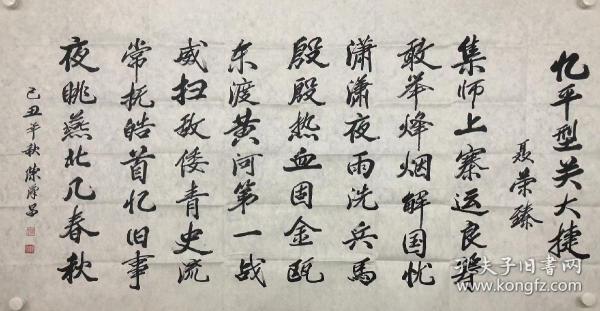 忆平型关大捷
聂荣臻
集师上寨运良筹
敢举烽烟解国忧
潇潇夜雨洗兵马
殷殷热血固金瓯
东渡黄河第一战
威扫敌倭青史流
常抚皓首忆旧事
夜眺燕北几春秋
己丑年秋
孔夫子旧书网
www.kongfz.com